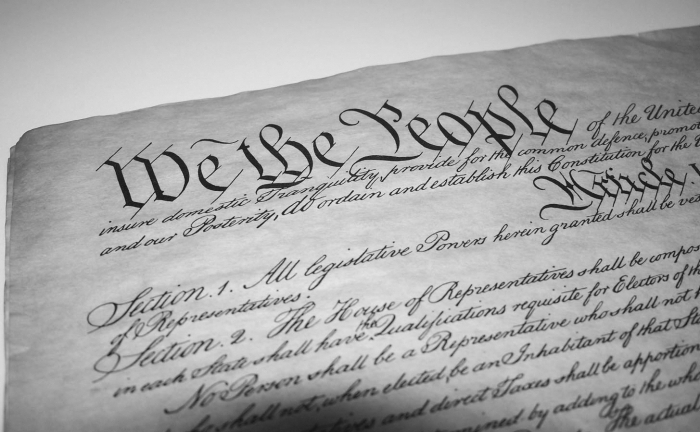 We the People of the United
insure domestic Tranquility, provide for the common defence, promot
and our Posterity, do ordain and establish this Constitution for the
Article.
Section. 1. All legislative Powers herein granted shall be ves
of Representatives.
Section. 2. The House of Representatives shall be compos
in each State shall have the Qualifications requisite for Electors of th
No Person shall be a Representative who shall not
shall not, when elected, be an Inhabitant of that Sta
and direct Taxes shall be apportion
by adding to the who
The actual